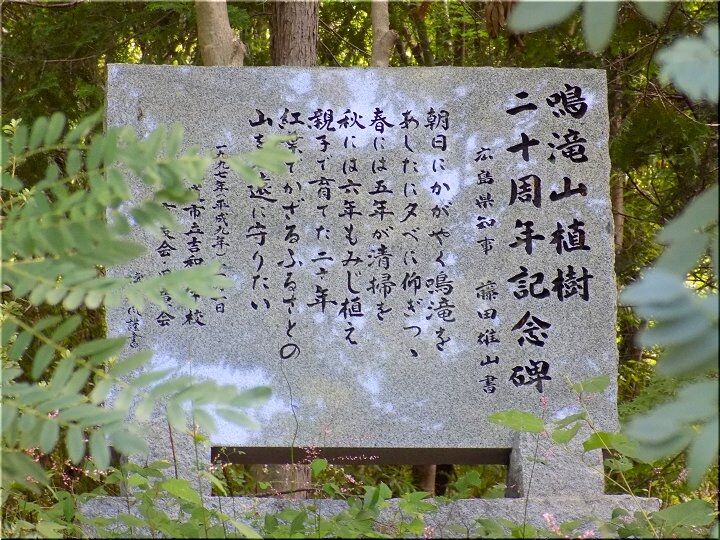 鳴滝山植樹
二十周年記念碑
広島県知事 藤田雄山書
朝日にかがやく鳴滝を
あしたに夕べに仰ぎつゝ
春には五年が清掃を
秋には六年もみじ植え
親子で育てた二十年
紅葉でかざるふるさとの
山を 遠に守りたい
一九九七年(平成九年) 一日
市立吉和 校
会 会
謹書